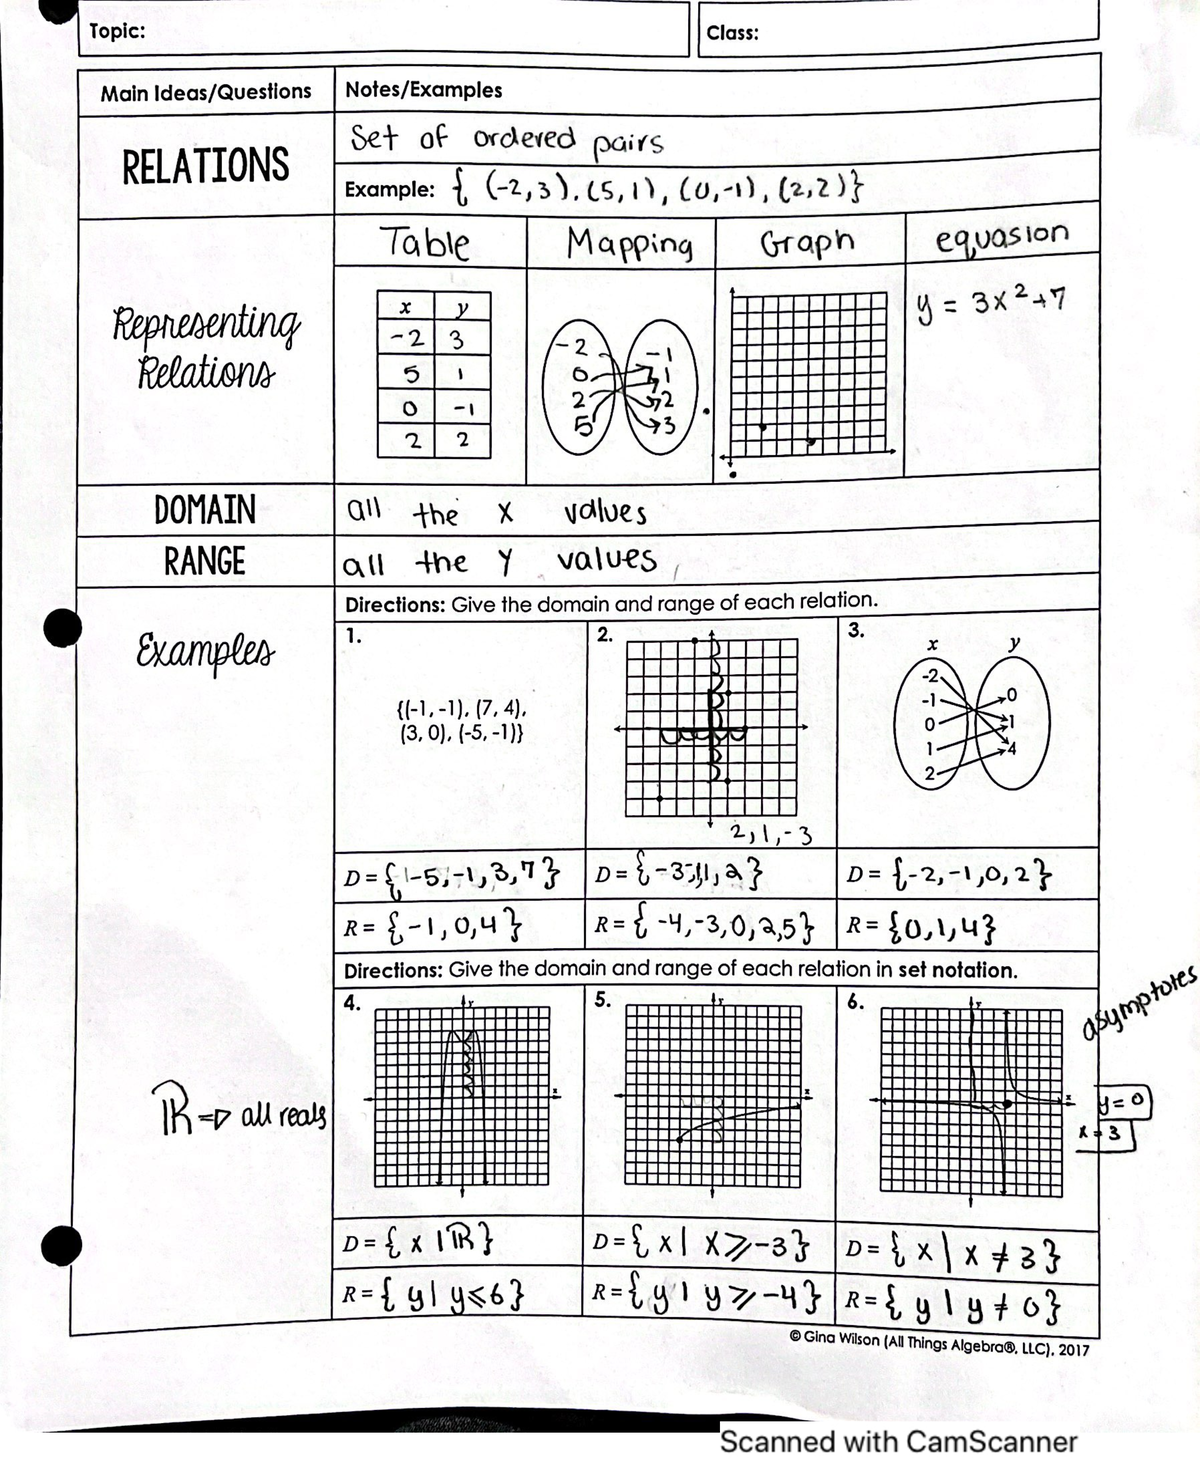 Topic:
Class:
Main Ideas/Questions
Notes/Examples
RELATIONS
Set of ordered pairs
Example: { (-2,3), (5,1), (0,-1), (2,2)}
Representing
Relations
Table
Mapping
Graph
equasion
x y
-2 3
5 1
0 -1
2 2
-2
0
2
5
-1
1
2
3
y = 3x²+7
DOMAIN
all the x values
RANGE
all the y values
Examples
Directions: Give the domain and range of each relation.
1.
{(-1, -1), (7, 4),
(3, 0), (-5, -1)}
D = {-5,-1,3,7}
R = {-1,0,4}
2.
2,1,-3
D = {-3,-1,1,2}
R = {-4,-3,0,2,5}
3.
x y
-2
-1
0
1
2
0
1
4
D = {-2,-1,0,2}
R = {0,1,4}
Directions: Give the domain and range of each relation in set notation.
ℝ => all reals
4.
y
x
D = {x|ℝ}
R = {y|y≤6}
5.
y
x
D = {x|x≥-3}
R = {y|y≥-4}
6.
y
x
asymptotes
y=0
x=3
D = {x|x≠3}
R = {y|y≠0}
© Gina Wilson (All Things Algebra®, LLC), 2017
Scanned with CamScanner